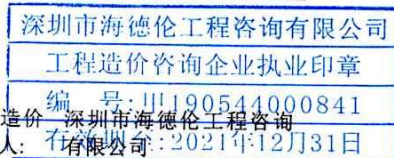 深圳市海德伦工程咨询有限公司
工程造价咨询企业执业印章
编 号:甲190544000841
造价 深圳市海德伦工程咨询
有效期至:2021年12月31日
人: 有限公司